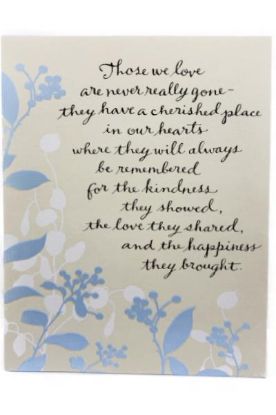 Those we love
are never really gone-
they have a cherished place
in our hearts
where they will always
be remembered
for the kindness
they showed,
the love they shared,
and the happiness
they brought.